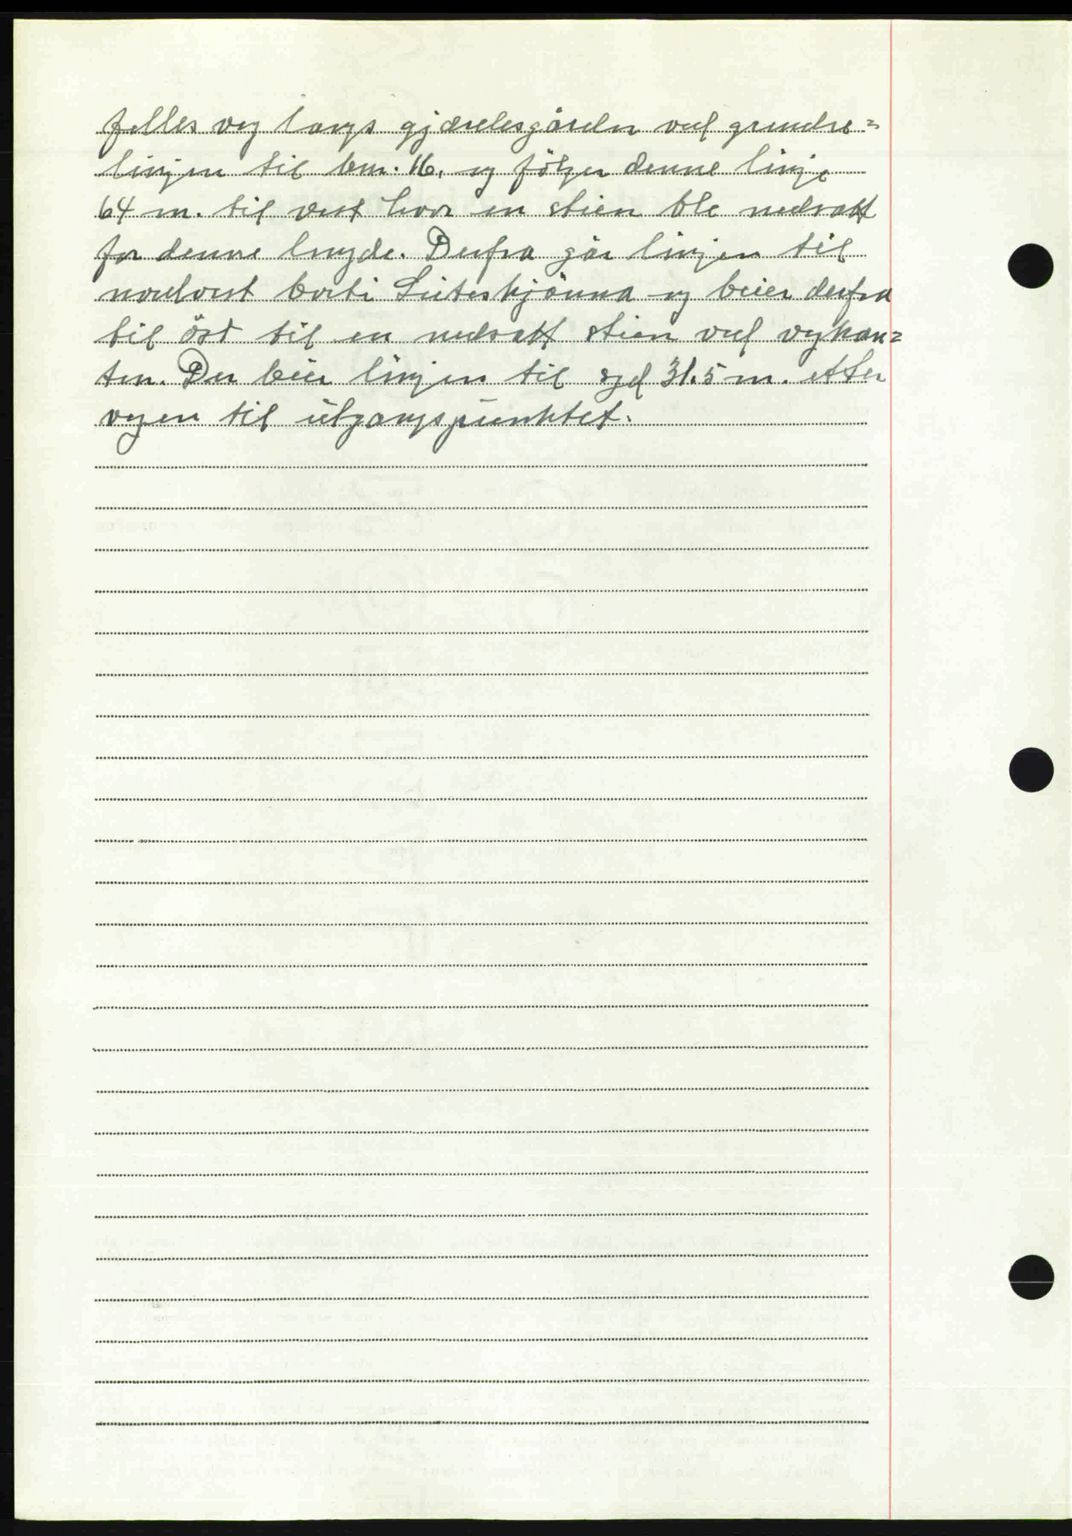 felles veg langs gjærdesgården ved grundse=
linjen til bnr. 16, og følger denne linje
64 m. til vest hvor en stien ble nedsatt
for denne lengde. Derfra går linjen til
nordvest borti og beier derfra
til öst til en nedsatt stien ved vegkan=
ten. Der beier linjen til syd 31.5 m. etter
vegen til utgangspunktet.